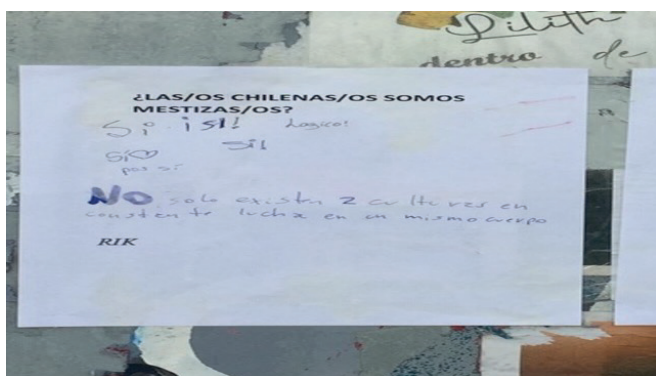 Lilith
dentro de
¿LAS/OS CHILENAS/OS SOMOS
MESTIZAS/OS?
Sí ¡SI! Logico!
Sí♡ Sí!
por sí
NO solo existen 2 culturas en
constante lucha en un mismo cuerpo
RIK